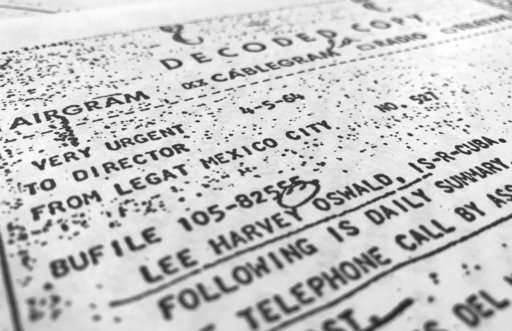 DECODED COPY
AIRGRAM CABLEGRAM RADIO
VERY URGENT 4-5-64
TO DIRECTOR
FROM LEGAT MEXICO CITY NO. 527
BUFILE 105-82555
LEE HARVEY OSWALD, IS-R-CUBA.
FOLLOWING IS DAILY SUMMARY.
TELEPHONE CALL BY
DEL